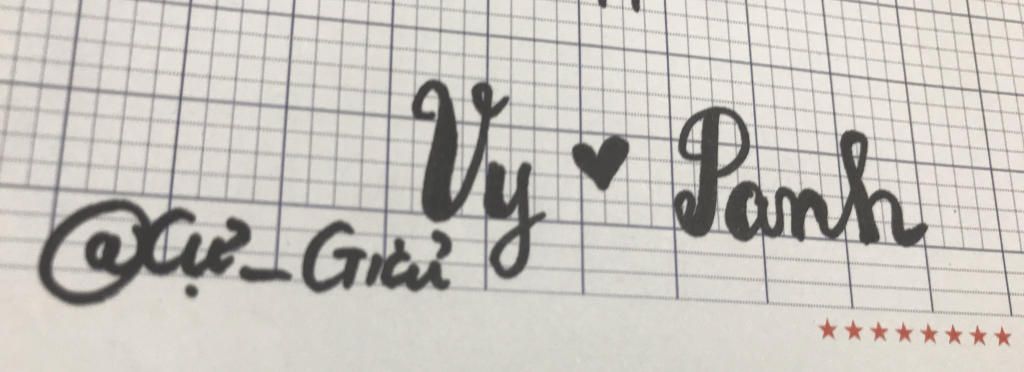 Vy ♥ Panh
@Cự_Giải